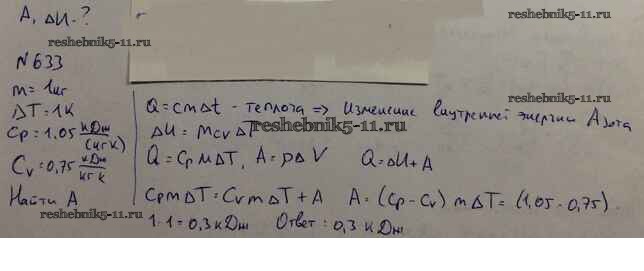 A, ΔU - ?
reshebnik5-11.ru
reshebnik5-11.ru
N 633
m = 1 кг
ΔT = 1 K
Cp = 1.05 кДж/(кг К)
Cv = 0,75 кДж/кг К
Найти A
Q = cmΔt - теплота => Изменение внутренней энергии Азота
ΔU = mcvΔT
Q = Cp mΔT, A = pΔV Q = ΔU + A
CpmΔT = CvmΔT + A A = (Cp - Cv) mΔT = (1,05 - 0,75) ·
1·1 = 0,3 кДж Ответ: 0,3 кДж
reshebnik5-11.ru
reshebnik5-11.ru
reshebnik5-11.ru
reshebnik5-11.ru